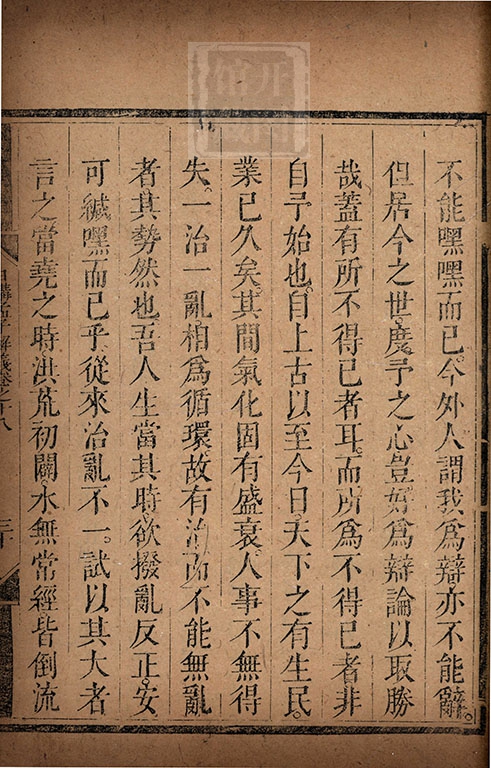 不能嘿嘿而已。今外人謂我為辯亦不能辭。
但居今之世度予之心豈好為辯論以取勝
哉蓋有所不得已者耳。而所為不得已者非
自予始也。自上古以至今日天下之有生民。
業已久矣。其間氣化固有盛衰人事不無得
失。一治一亂。相為循環。故有治而不能無亂
者其勢然也吾人生當其時欲撥亂反正。安
可緘嘿而已乎。從來治亂不一。試以其大者
言之當堯之時洪荒初闢水無常經皆倒流
日講孟子解義卷之十八
三十